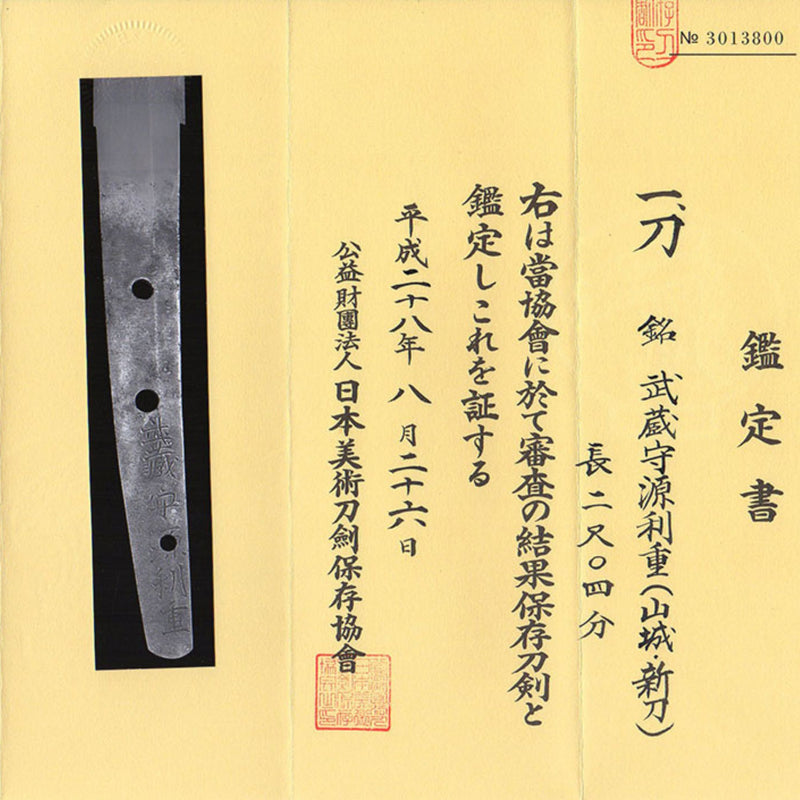 № 3013800
鑑定書
一、刀 銘 武蔵守源利重(山城・新刀)
長二尺〇四分
右は當協會に於て審査の結果保存刀剣と
鑑定しこれを証する
平成二十八年八月二十六日
公益財團法人日本美術刀劍保存協會
武蔵守源利重